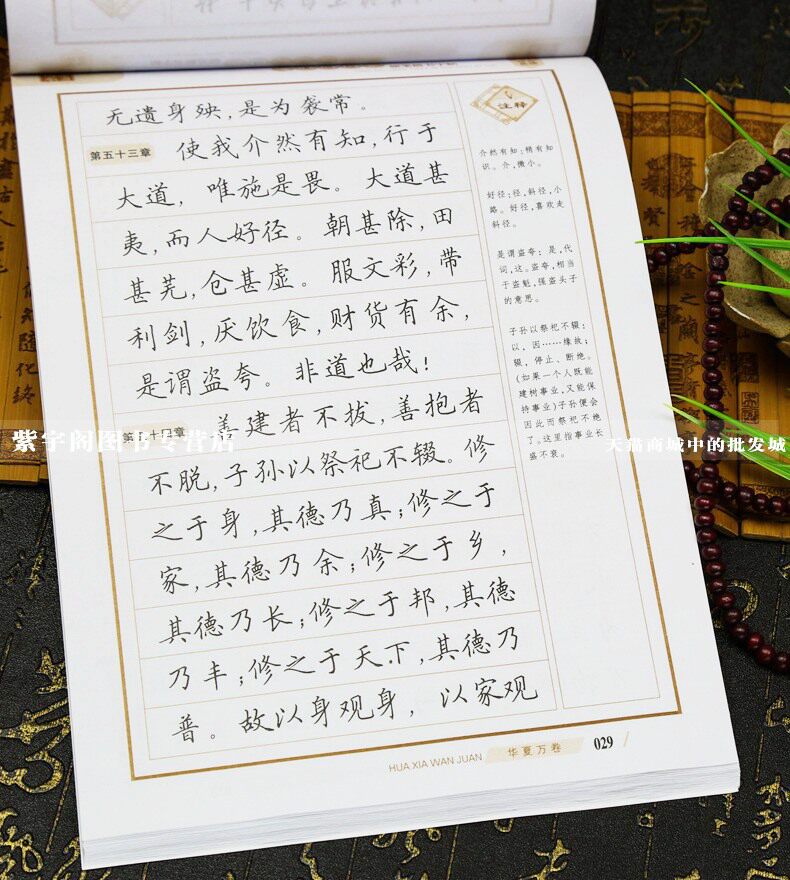 无遗身殃，是为袭常。
第五十三章 使我介然有知，行于
大道，唯施是畏。大道甚
夷，而人好径。朝甚除，田
甚芜，仓甚虚。服文彩，带
利剑，厌饮食，财货有余，
是谓盗夸。非道也哉！
第五十四章 善建者不拔，善抱者
不脱，子孙以祭祀不辍。修
之于身，其德乃真；修之于
家，其德乃余；修之于乡，
其德乃长；修之于邦，其德
乃丰；修之于天下，其德乃
普。故以身观身，以家观
注释
介然有知：稍有知
识。介，微小。
好径：径，斜径，小
路。好径，喜欢走
斜径。
是谓盗夸：是，代
词，这。盗夸，相当
于盗魁，强盗头子
的意思。
子孙以祭祀不辍：
以，因……缘故；
辍，停止、断绝。
(如果一个人既能
建树事业，又能保
持事业)子孙便会
因此而祭祀不绝
了。这里指事业长
盛不衰。
紫宇阁图书专营店
天猫商城中的批发城
HUA XIA WAN JUAN 华夏万卷 029